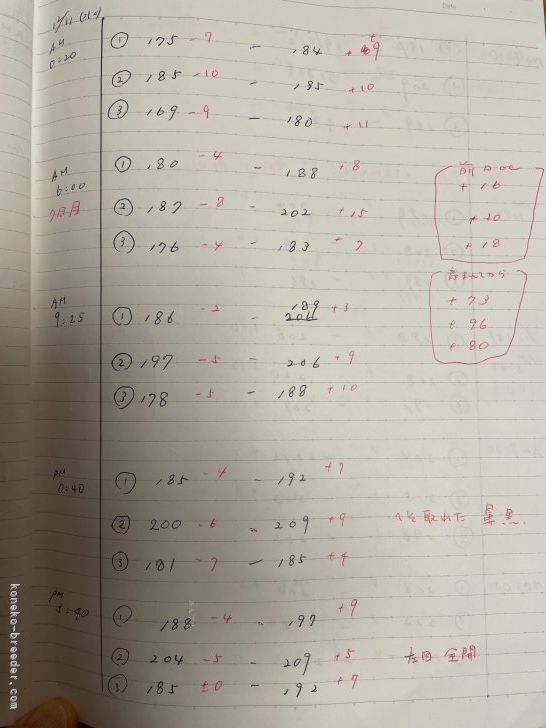 Date
12/11
AM
0:20
① 175 -7 - 184 +9
② 185 -10 - 195 +10
③ 169 -9 - 180 +11
AM
6:00
7日目
① 180 -4 - 188 +8
② 187 -8 - 202 +15
③ 176 -4 - 183 +7
前日比
+16
+20
+18
AM
9:25
① 186 -2 - 189 +3
206
② 197 -5 - 206 +9
③ 178 -5 - 188 +10
生まれてから
+73
+96
+80
PM
0:40
① 185 -4 - 192 +7
② 200 -6 - 209 +9 へそ取れた
③ 181 -7 - 185 +4
PM
3:40
① 188 -4 - 197 +9
② 204 -5 - 209 +5 左目 全開
③ 185 ±0 - 192 +7
koneko-breeder.com